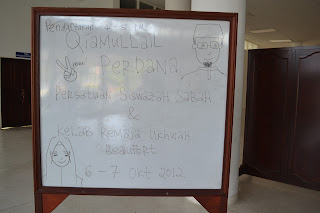 Pendaftaran
Qiamullail
Perdana
Persatuan Siswazah Sabah
&
Kelab Remaja Ukhwah
Beaufort
6 - 7 Okt 2012